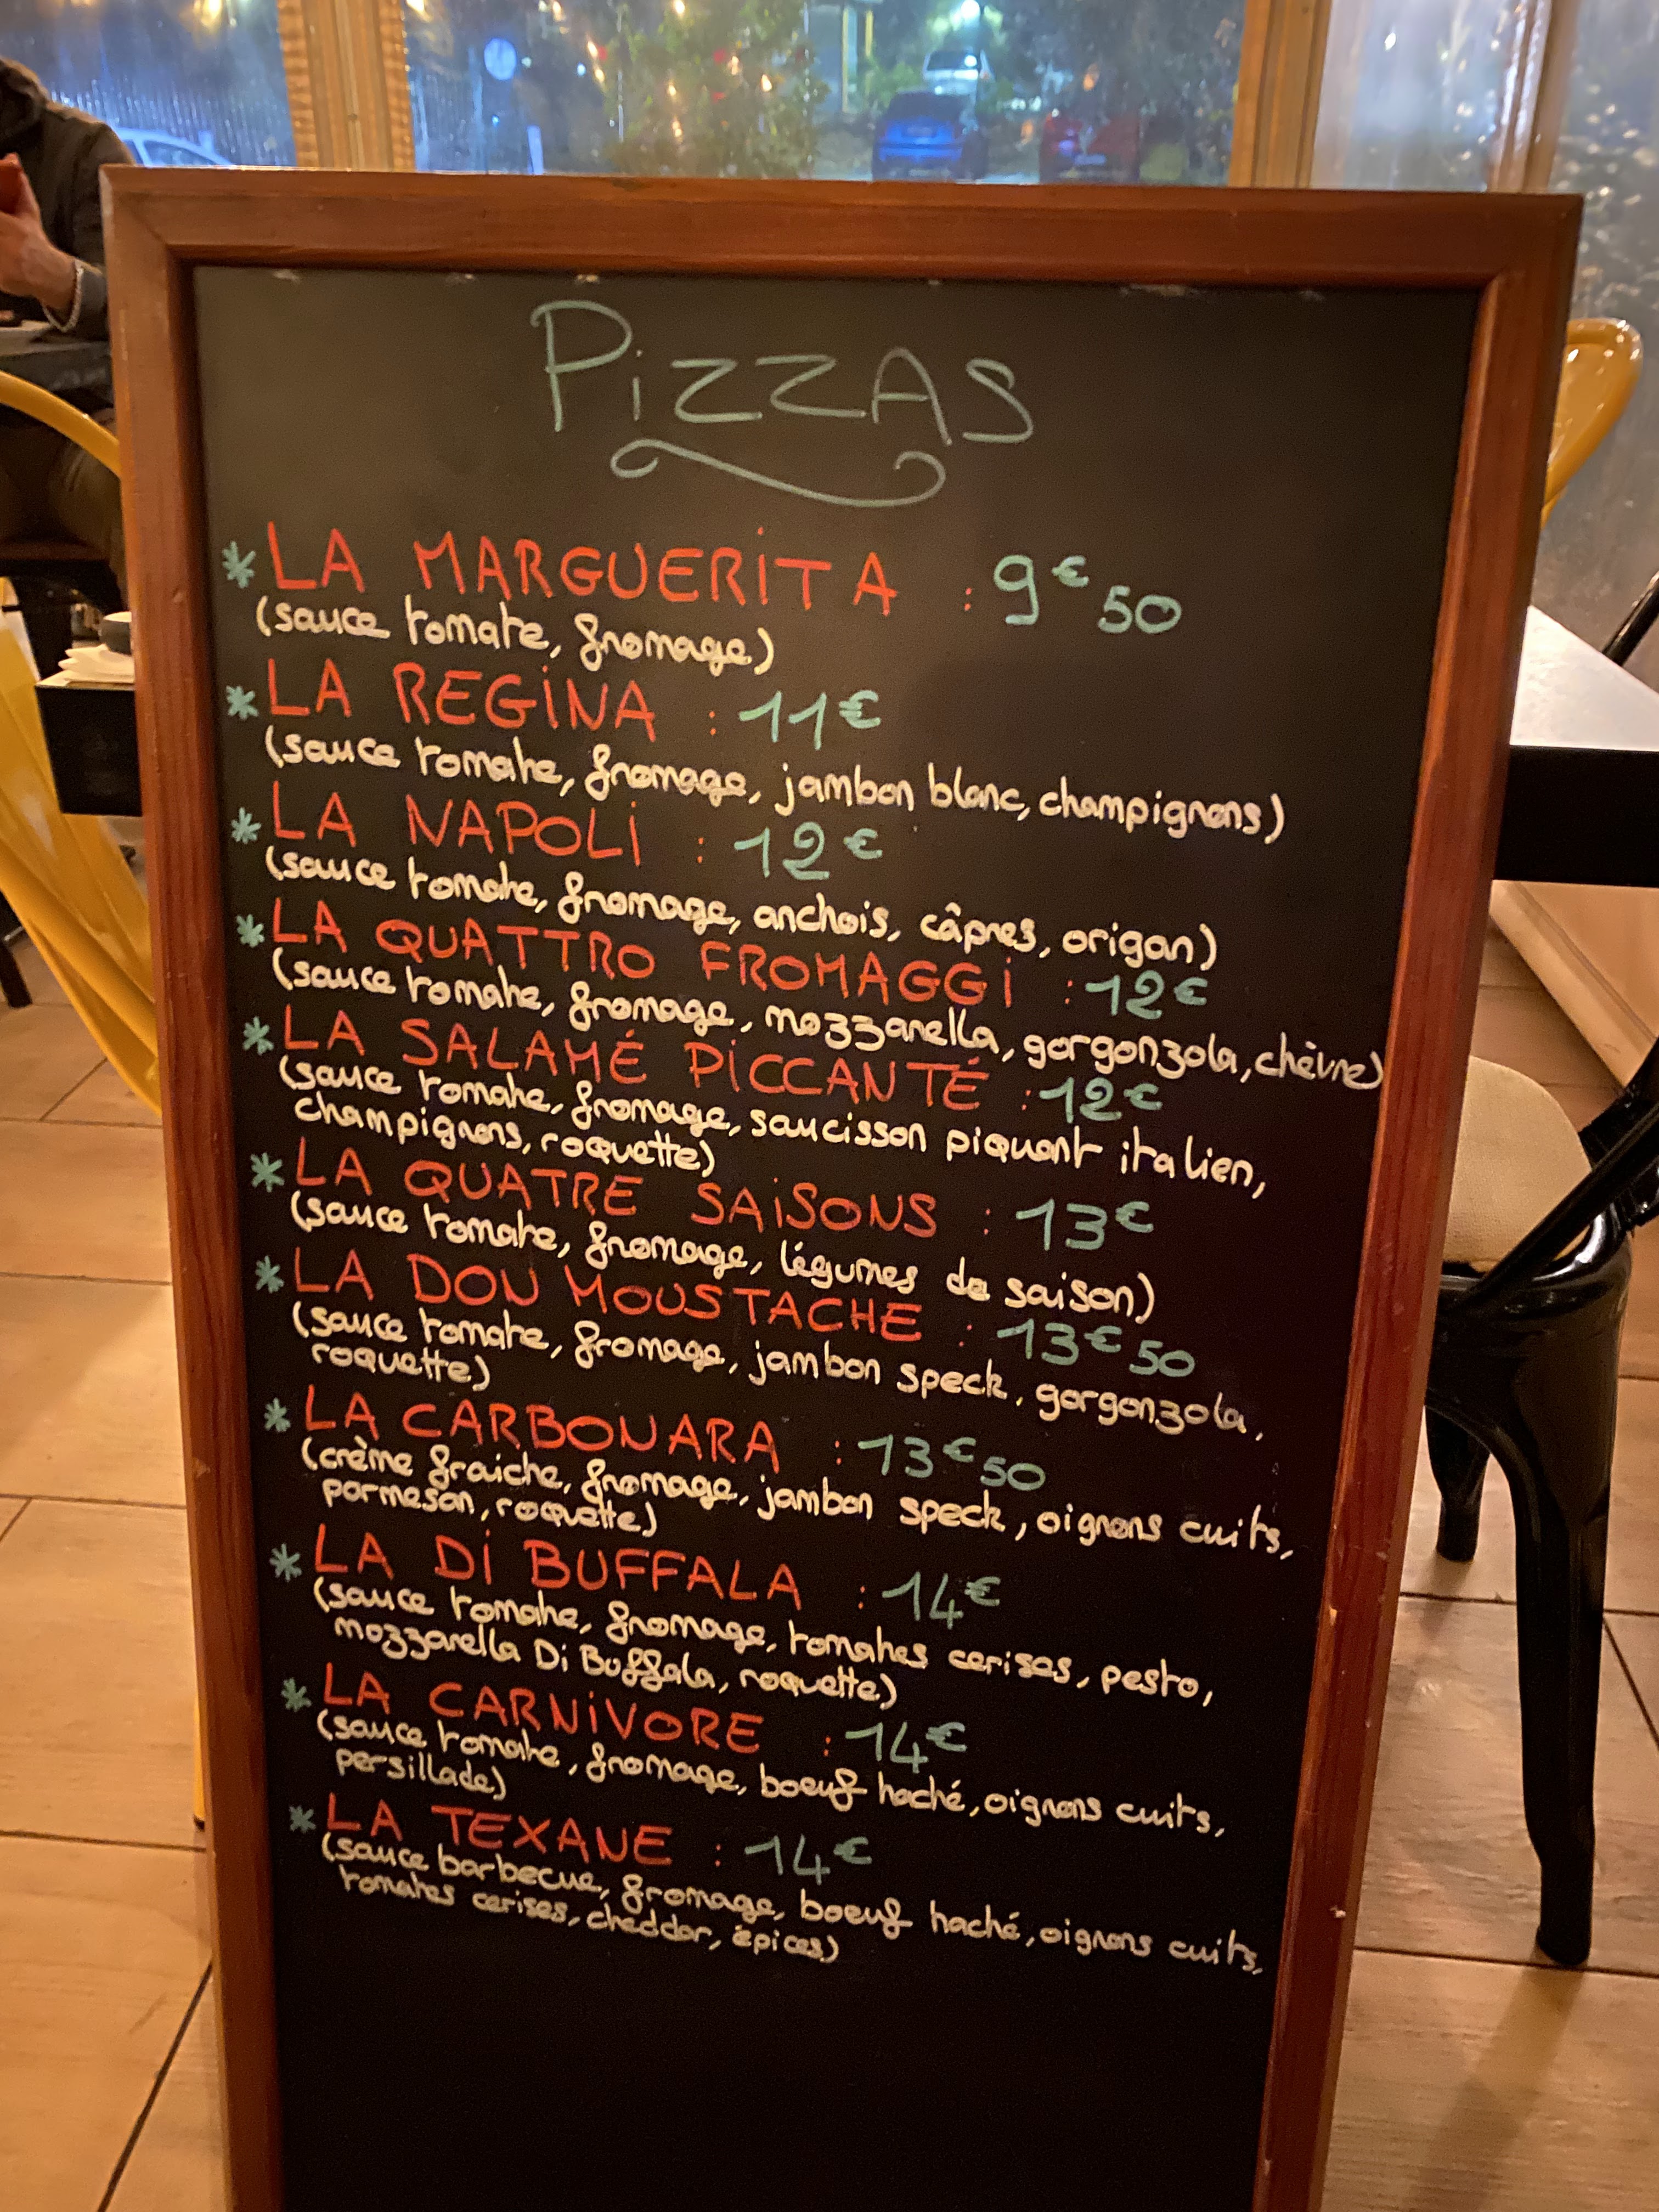 PiZZAS
* LA MARGUERiTA : 9€50
(sauce tomate, fromage)
* LA REGiNA : 11€
(sauce tomate, fromage, jambon blanc, champignons)
* LA NAPOLi : 12€
(sauce tomate, fromage, anchois, câpres, origan)
* LA QUATTRO FROMAGGi : 12€
(sauce tomate, fromage, mozzarella, gorgonzola, chèvre)
* LA SALAMÉ PiCCANTÉ : 12€
(sauce tomate, fromage, saucisson piquant italien,
champignons, roquette)
* LA QUATRE SAiSONS : 13€
(sauce tomate, fromage, légumes de saison)
* LA DON MOUSTACHE : 13€50
(sauce tomate, fromage, jambon speck, gorgonzola,
roquette)
* LA CARBONARA : 13€50
(crème fraiche, fromage, jambon speck, oignons cuits,
parmesan, roquette)
* LA Di BUFFALA : 14€
(sauce tomate, fromage, tomates cerises, pesto,
mozzarella Di Buffala, roquette)
* LA CARNiVORE : 14€
(sauce tomate, fromage, boeuf haché, oignons cuits,
persillade)
* LA TEXANE : 14€
(sauce barbecue, fromage, boeuf haché, oignons cuits,
tomates cerises, cheddar, épices)